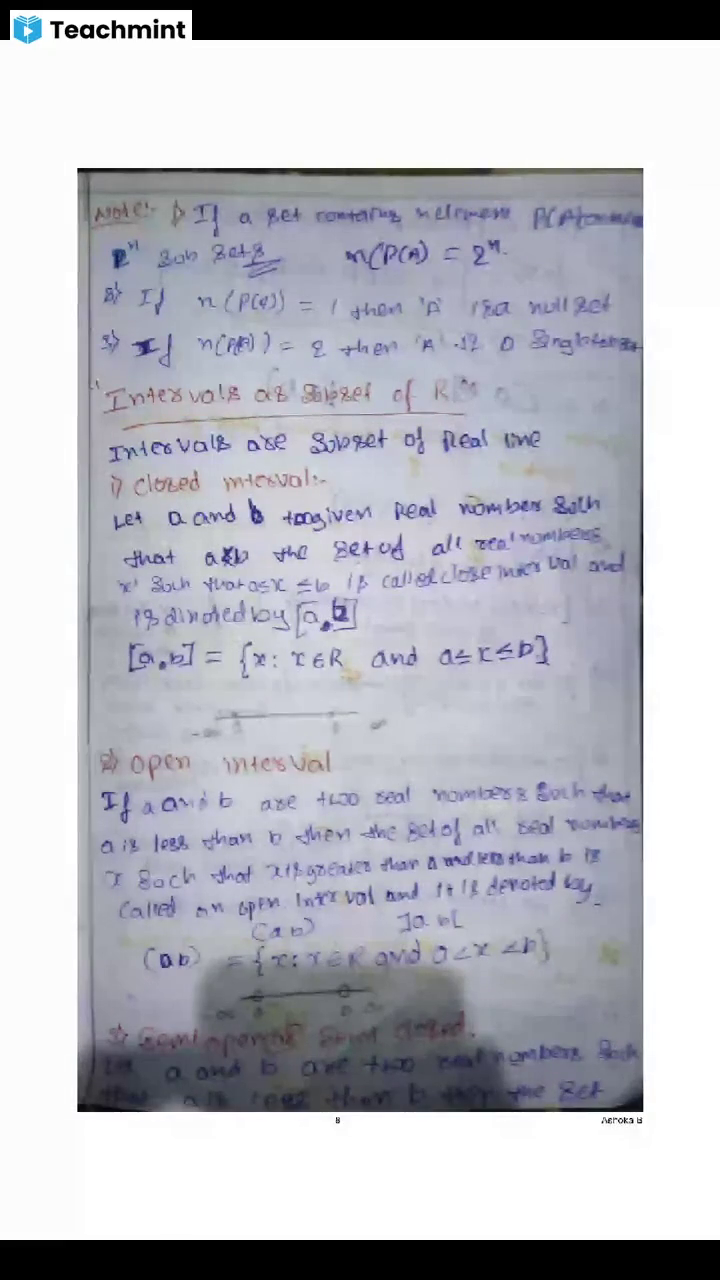 Teachmint
Note:- 1) If a set contains n elements P(A) contains
2ⁿ Sub Sets n(P(A) = 2ⁿ.
2) If n(P(A)) = 1 then 'A' is a null set
3) If n(P(A)) = 2 then 'A' is a Singleton set
Intervals as Subset of R
Intervals are Subset of Real line
1) Closed interval:-
Let a and b two given Real numbers Such
that a<b the set of all real numbers
'x' Such that a≤x ≤b is called close interval and
is dinoted by [a,b]
[a,b] = {x: x∈R and a≤x≤b}
-∞ a b ∞
2) Open interval
If a and b are two real numbers Such that
a is less than b then the set of all real numbers
x Such that x is greater than a and less than b is
Called an open interval and it is denoted by
(a b) ]a b[
(ab) = {x: x∈R and a<x<b}
-∞ a b ∞
3) Semi open or Semi closed.
Let a and b are two real numbers Such
that a is less than b then the set
8 Ashoka B